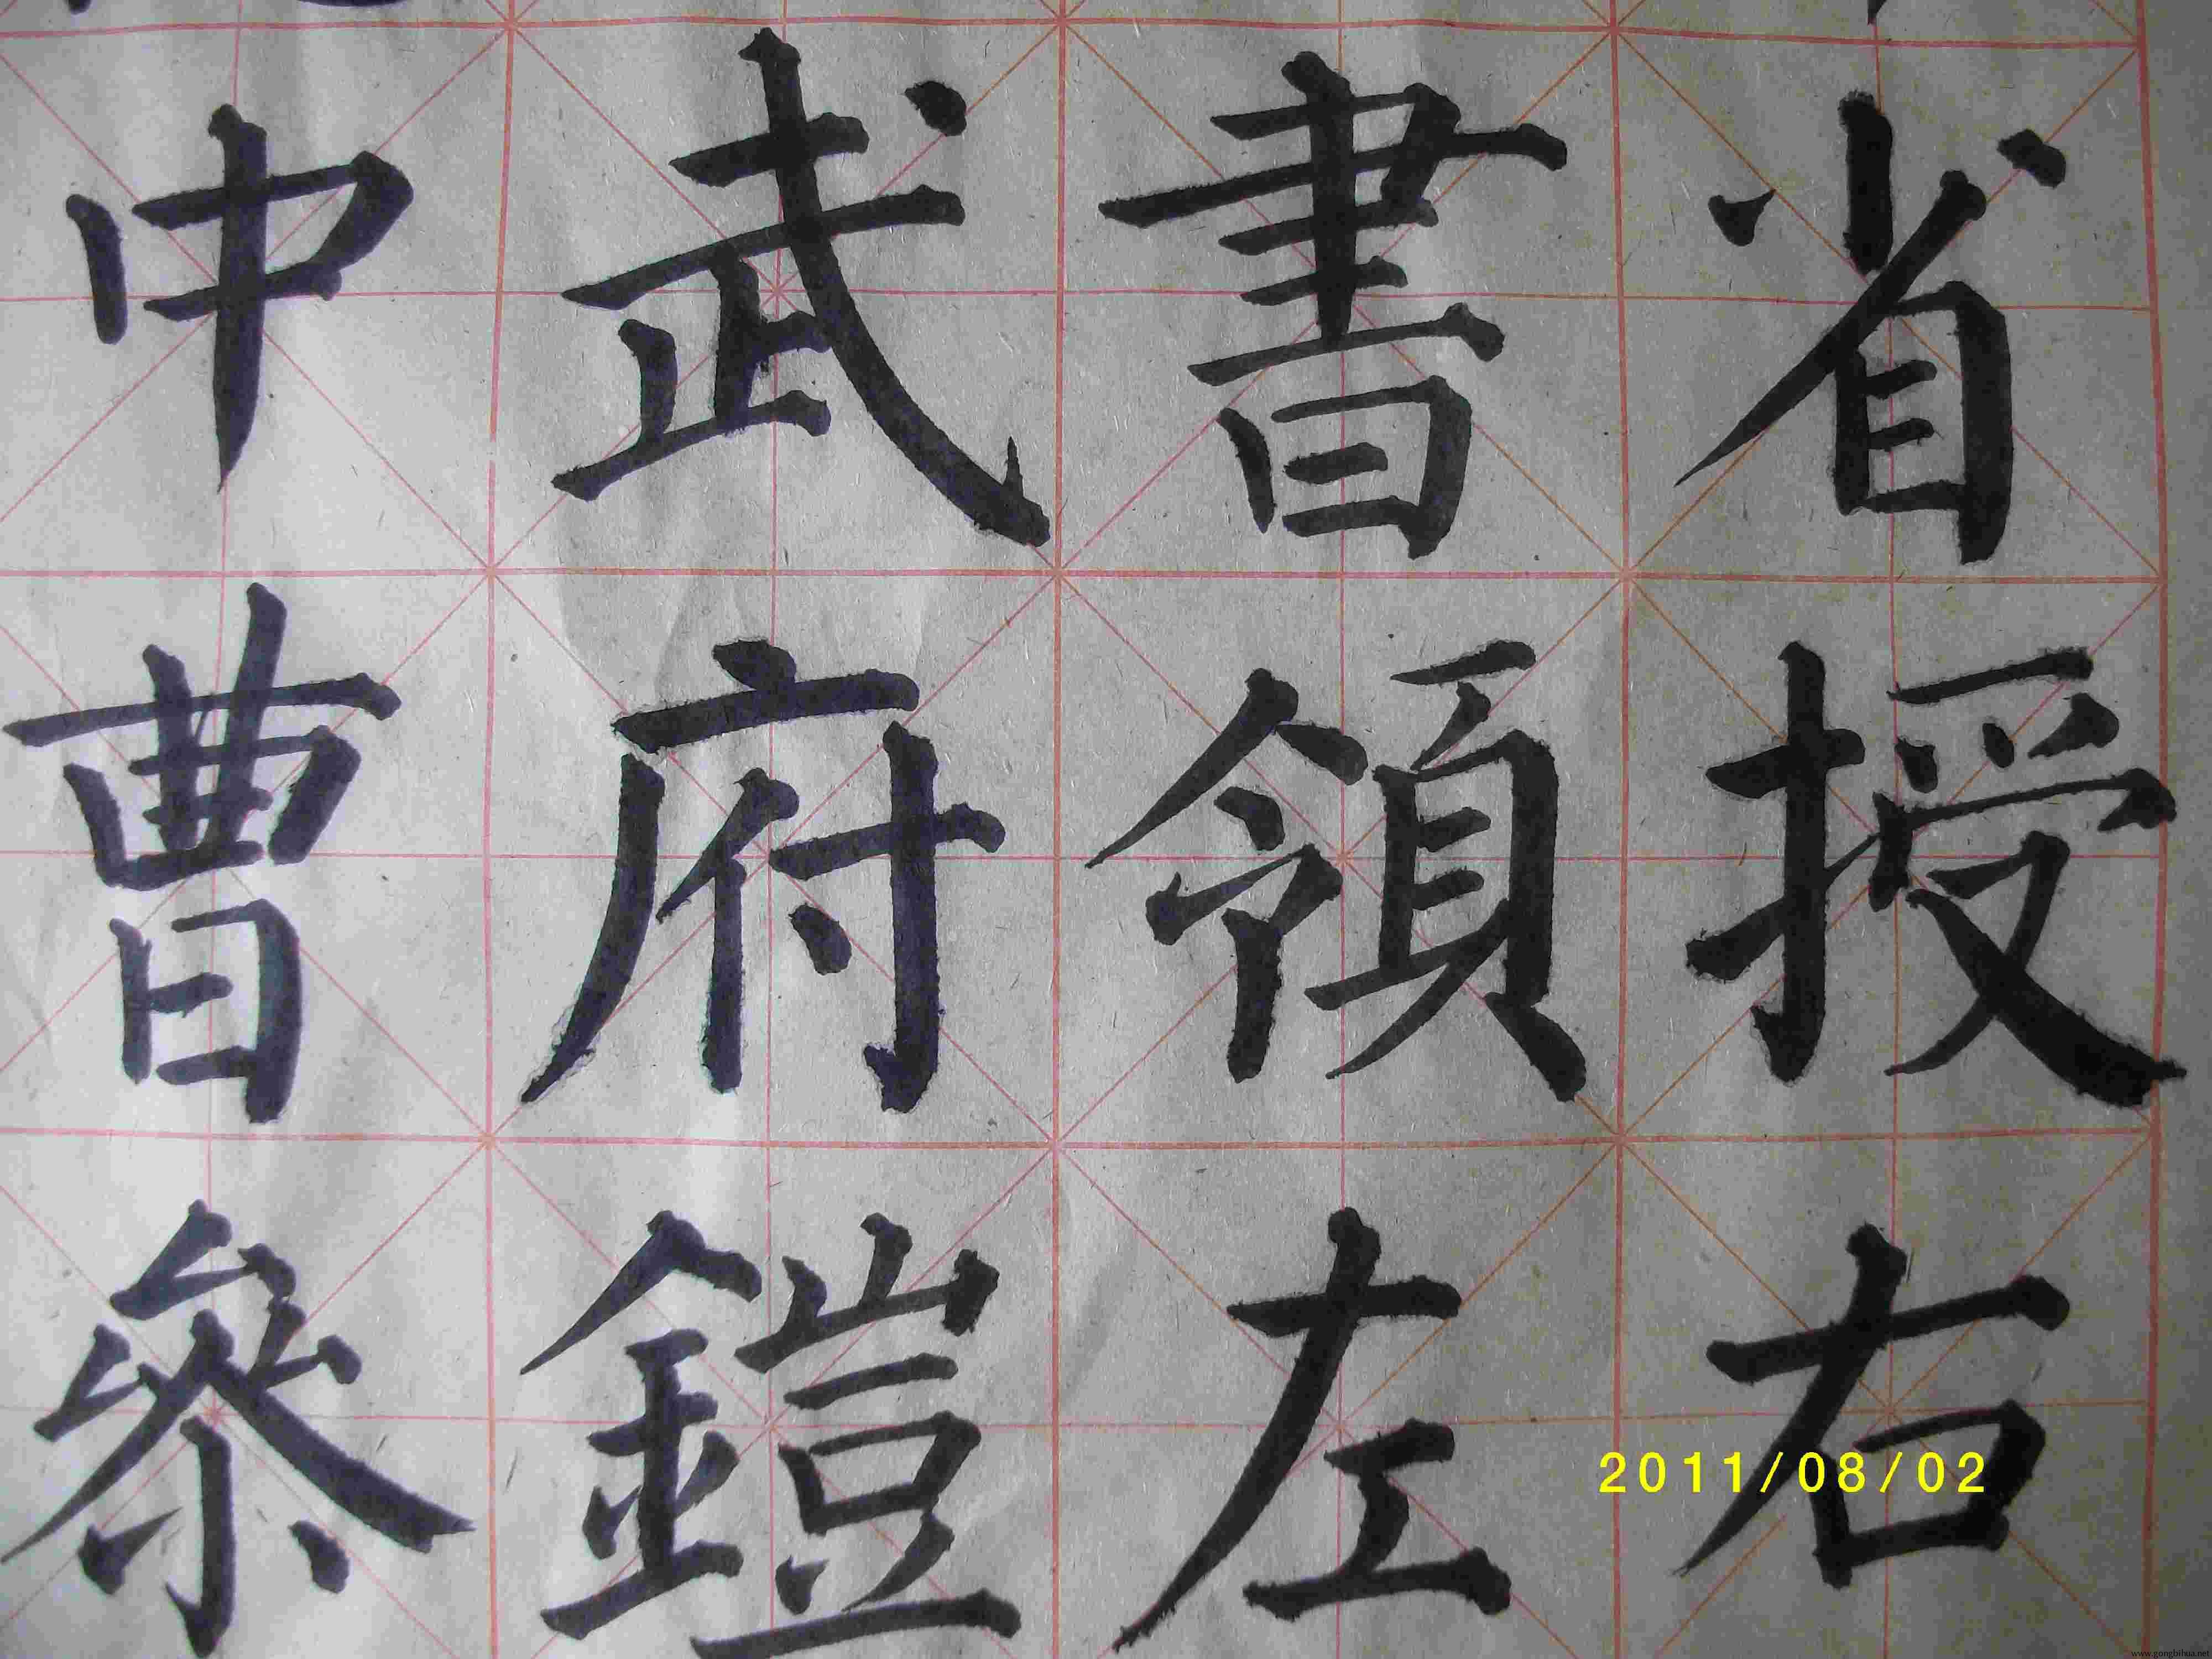 省授右
書領左
武府鎧
中曹參
2011/08/02
www.gongbihua.net